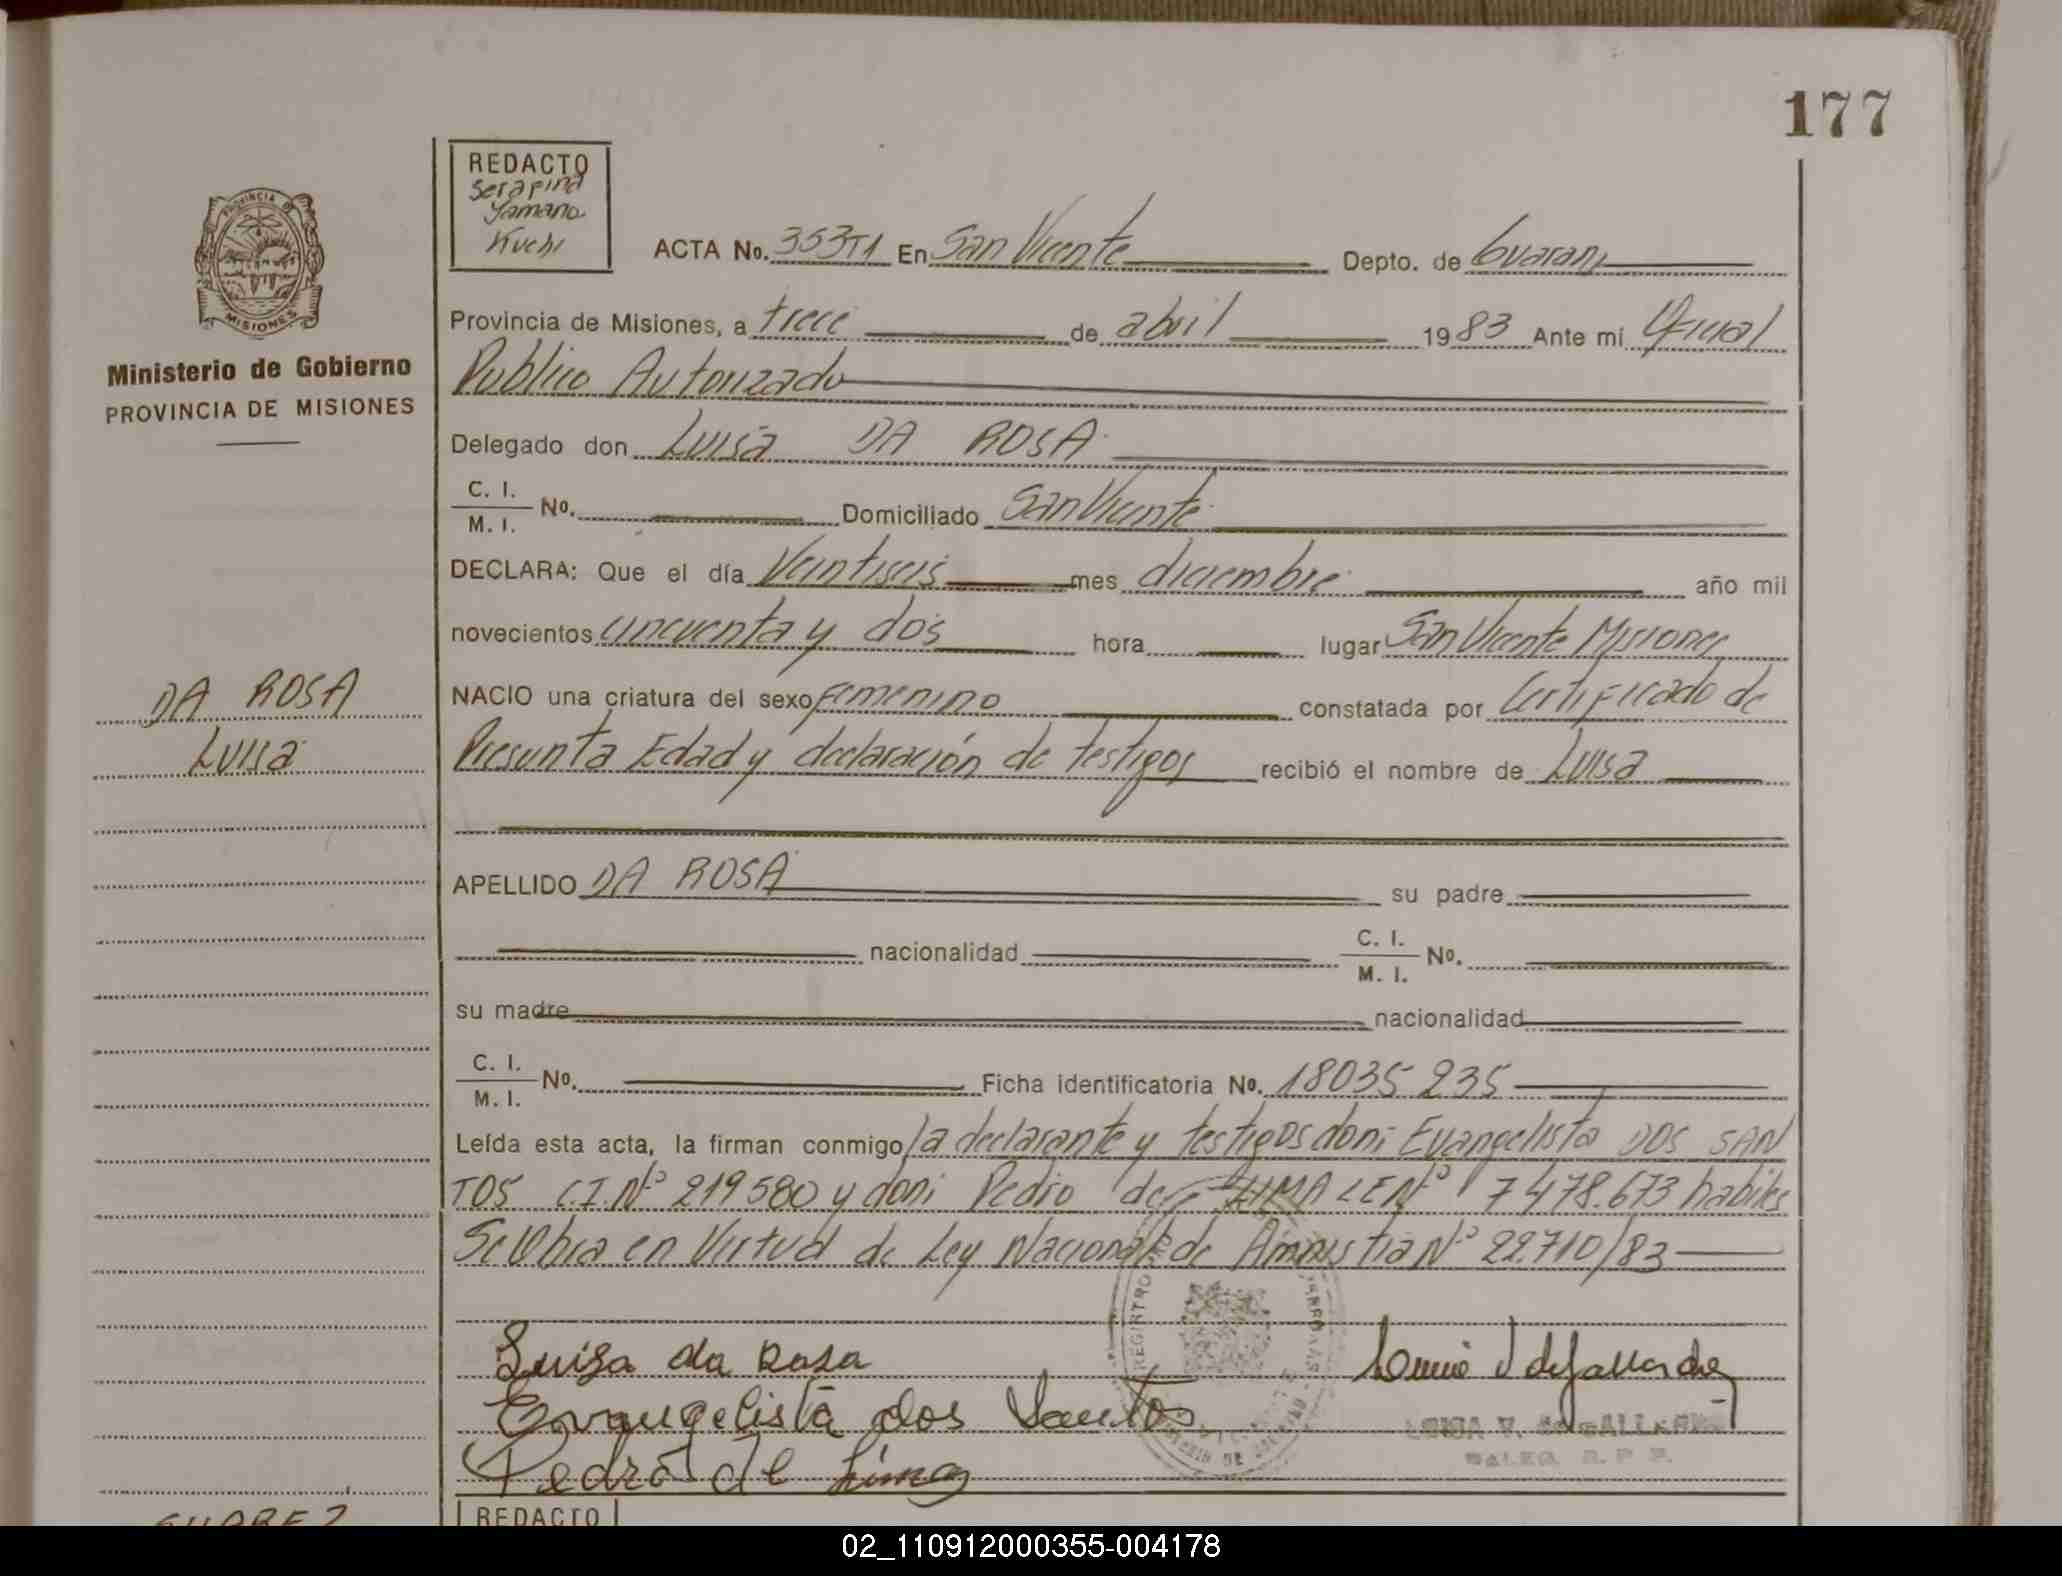 177
REDACTO
Serapina
Yamana
Kuchi
ACTA No. 353T1 En San Vicente Depto. de Guarani
PROVINCIA DE
MISIONES
Provincia de Misiones, a trece de abril 1983 Ante mi Oficial
Ministerio de Gobierno
PROVINCIA DE MISIONES
Publico Autorizado
Delegado don Luisa DA ROSA
C. I.
M. I. No. Domiciliado San Vicente
DECLARA: Que el día Veintiseis mes diciembre año mil
novecientos cincuenta y dos hora lugar San Vicente Misiones
DA ROSA
Luisa
NACIO una criatura del sexo Femenino constatada por Certificado de
Presunta Edad y declaración de testigos recibió el nombre de Luisa
APELLIDO DA ROSA su padre
nacionalidad C. I.
M. I. No.
su madre nacionalidad
C. I.
M. I. No. Ficha identificatoria No. 18035235
Leída esta acta, la firman conmigo la declarante y testigos doni Evangelista DOS SAN
TOS C.I.Nº 219580 y doni Pedro de LIMA LE Nº 7478.673 habiles
Se labra en Virtud de Ley Nacional de Amnistia Nº 22.710/83
Luisa da Rosa
Evangelista dos Santos
Pedro de Lima
REGISTRO
REDACTO
SUAREZ
02_110912000355-004178